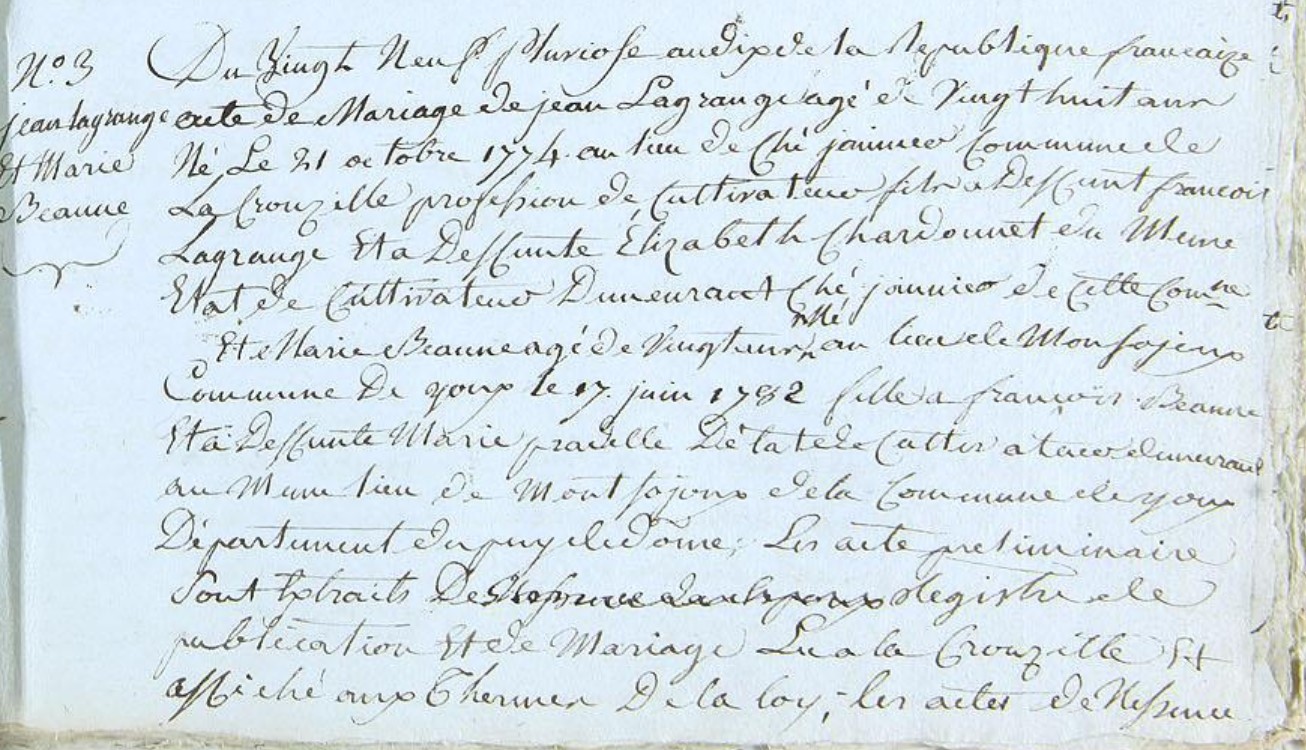 N.o 3
jean lagrange
Et Marie
Beaune
Du Vingt Neuf Pluviose an dix de la Republique francaize
acte de Mariage de jean Lagrange agé de Vingt huit ans
Né Le 21 octobre 1774 au lieu de Ché jainnier Commune de
La Crouzille profession de Cultivateur fils a Deffunt francois
Lagrange Et a Deffunte Élizabeth Chardonnet du Meme
Etat de Cultivateur Demeurant Ché jainnier de cette Com.ne
Et Marie Beaune agé de Vingt ans Né au lieu de Monsojoux
Commune De youx le 17 juin 1782 fille a francois Beaune
Et a Deffunte Marie Dé l'at de Cultivateur demeurant
au Meme lieu de Montsojoux dela Commune de youx
Département du puy de dome, Les acte preliminaire
Sont Extraits Des Registre de
publication Et de Mariage Lu a la Crouzille Et
affiché aux Thermes De la loy, les actes de Nessence